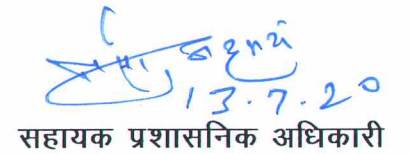 13.7.20
सहायक प्रशासनिक अधिकारी